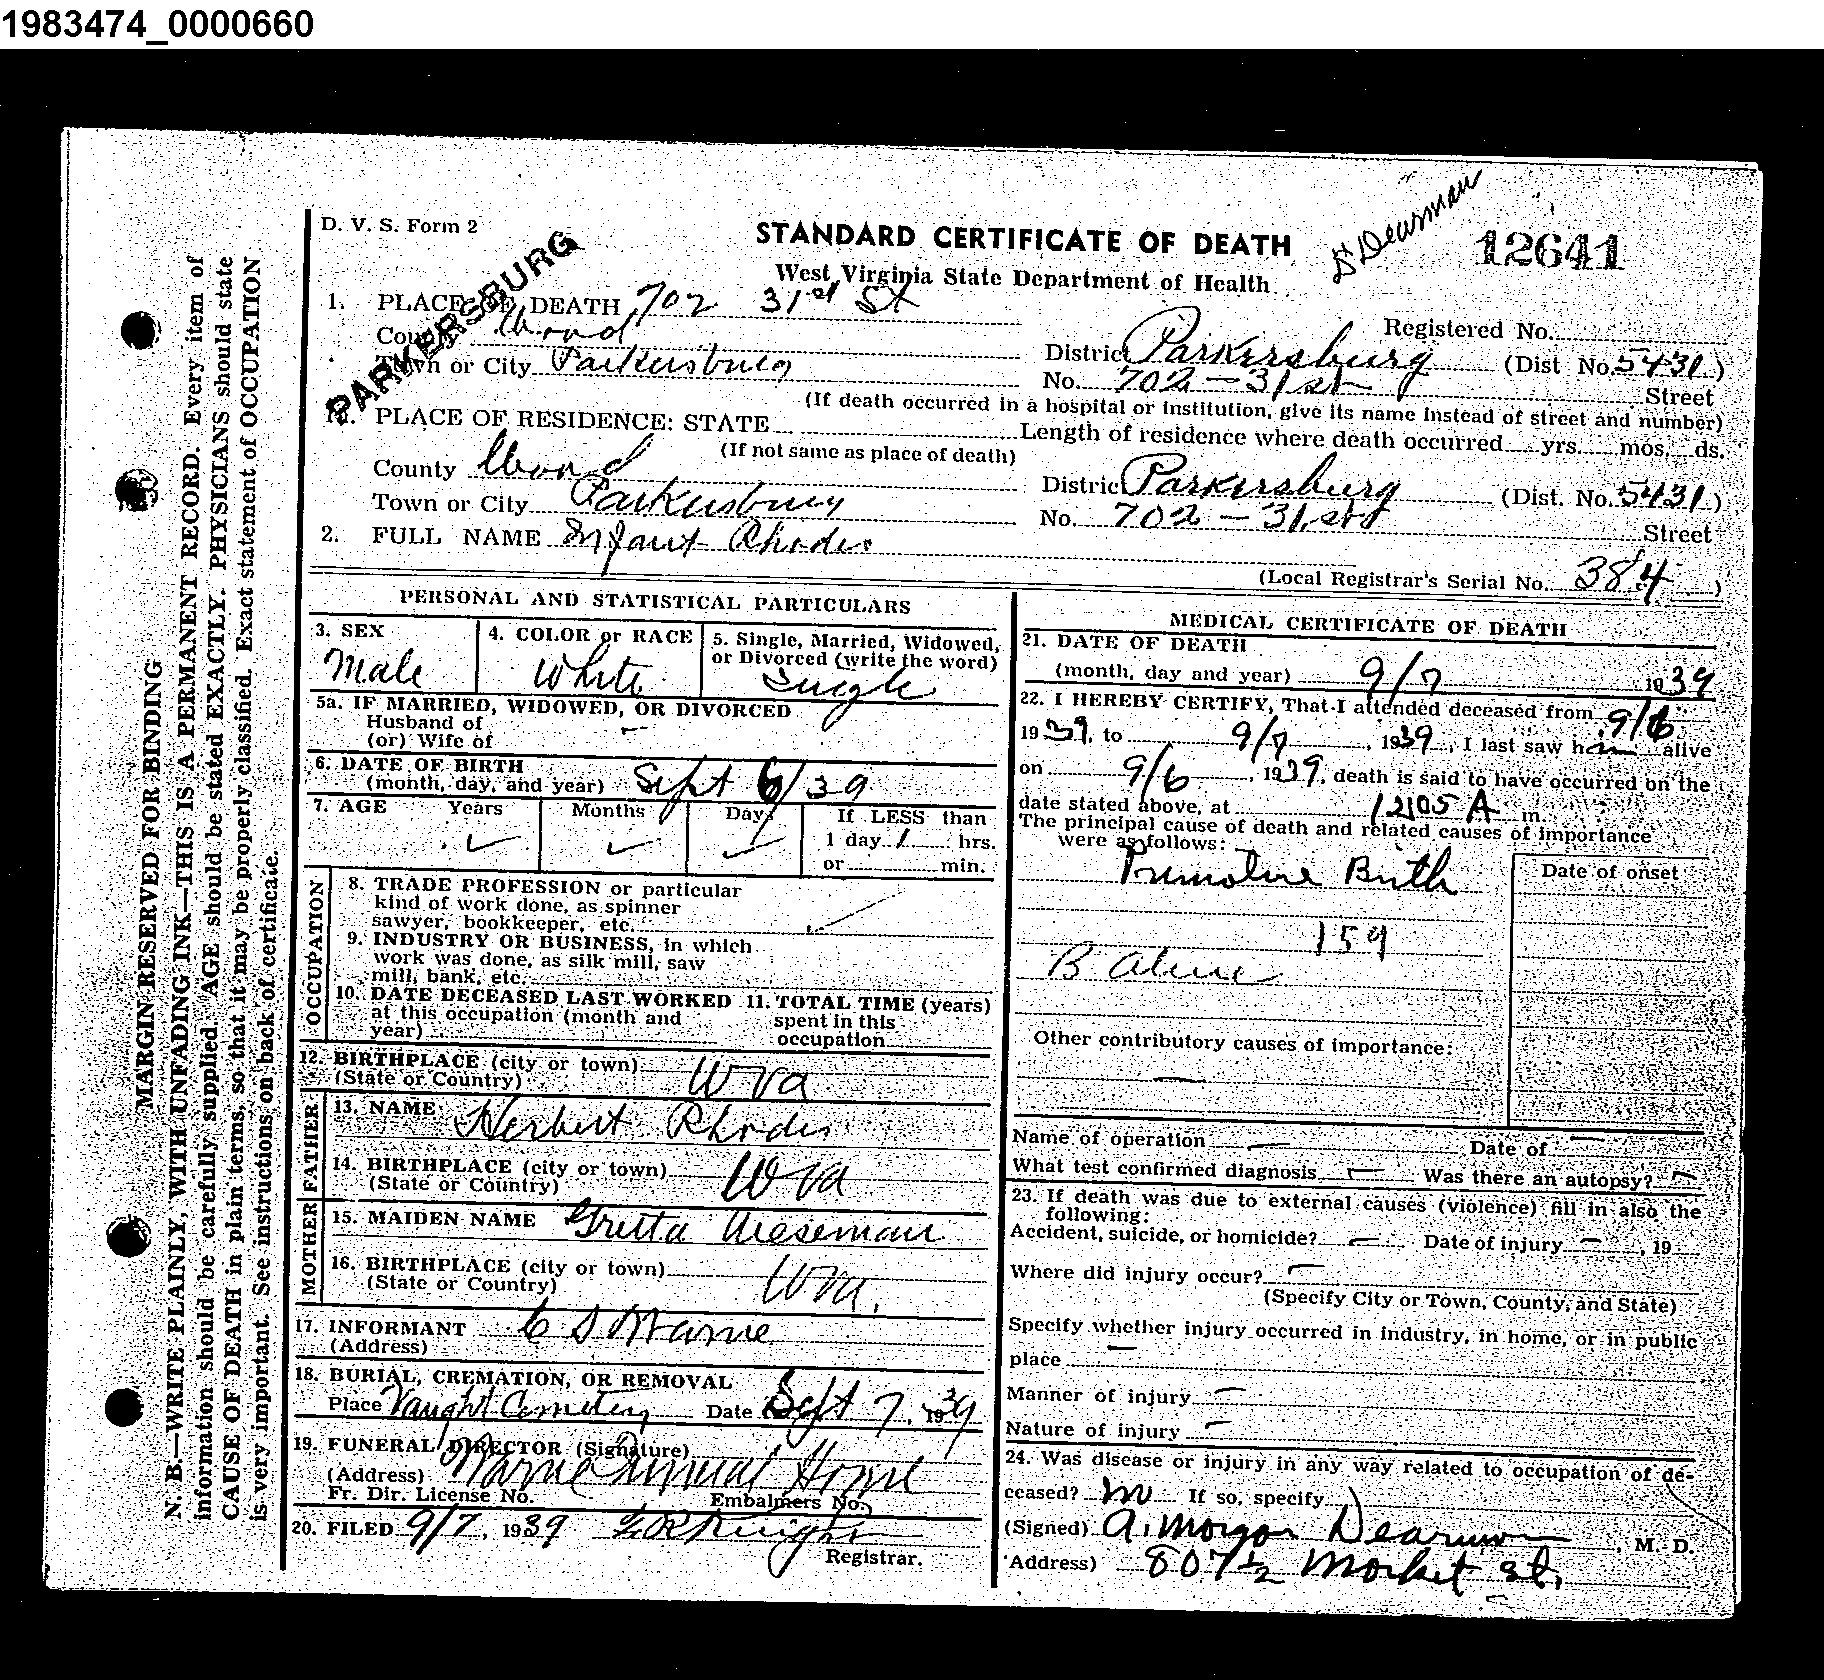 1983474_0000660
D. V. S. Form 2
PARKERSBURG
STANDARD CERTIFICATE OF DEATH
Dr Dearman
12641
West Virginia State Department of Health
1. PLACE OF DEATH 702 31st St
Registered No.
County Wood
District Parkersburg (Dist No. 5431)
Town or City Parkersburg
No. 702 - 31st Street
(If death occurred in a hospital or institution, give its name instead of street and number)
1a. PLACE OF RESIDENCE: STATE
Length of residence where death occurred yrs. mos. ds.
(If not same as place of death)
County Wood
District Parkersburg (Dist. No. 5431)
Town or City Parkersburg
No. 702 - 31st Street
2. FULL NAME Infant Rhodes
(Local Registrar's Serial No. 384)
PERSONAL AND STATISTICAL PARTICULARS
3. SEX Male
4. COLOR or RACE White
5. Single, Married, Widowed, or Divorced (write the word) Single
5a. IF MARRIED, WIDOWED, OR DIVORCED
Husband of
(or) Wife of
6. DATE OF BIRTH
(month, day, and year) Sept 6/39
7. AGE Years Months Days If LESS than
1 day 1 hrs.
or min.
OCCUPATION
8. TRADE PROFESSION or particular
kind of work done, as spinner
sawyer, bookkeeper, etc.
9. INDUSTRY OR BUSINESS, in which
work was done, as silk mill, saw
mill, bank, etc.
10. DATE DECEASED LAST WORKED
at this occupation (month and
year)
11. TOTAL TIME (years)
spent in this
occupation
12. BIRTHPLACE (city or town)
(State or Country) W Va
FATHER
13. NAME Herbert Rhodes
14. BIRTHPLACE (city or town)
(State or Country) W Va
MOTHER
15. MAIDEN NAME Gretta Wiseman
16. BIRTHPLACE (city or town)
(State or Country) W Va.
17. INFORMANT
(Address)
18. BURIAL, CREMATION, OR REMOVAL
Place Vaught Cemetery Date Sept 7, 1939
19. FUNERAL DIRECTOR (Signature)
(Address) Funeral Home
Fr. Dir. License No. Embalmers No.
20. FILED 9/7, 1939 Knight
Registrar.
MEDICAL CERTIFICATE OF DEATH
21. DATE OF DEATH
(month, day and year) 9/7 1939
22. I HEREBY CERTIFY, That I attended deceased from 9/6
1939, to 9/7, 1939, I last saw him alive
on 9/6, 1939, death is said to have occurred on the
date stated above, at 1205 A m.
The principal cause of death and related causes of importance
were as follows:
Date of onset
Premature Birth
159
Other contributory causes of importance:
Name of operation Date of
What test confirmed diagnosis Was there an autopsy?
23. If death was due to external causes (violence) fill in also the
following:
Accident, suicide, or homicide? Date of injury , 19
Where did injury occur?
(Specify City or Town, County, and State)
Specify whether injury occurred in industry, in home, or in public
place
Manner of injury
Nature of injury
24. Was disease or injury in any way related to occupation of de-
ceased? no If so, specify
(Signed) A. Morgan Dearman, M. D.
Address) 807 1/2 Market St.
MARGIN RESERVED FOR BINDING
N. B.—WRITE PLAINLY, WITH UNFADING INK—THIS IS A PERMANENT RECORD. Every item of
information should be carefully supplied. AGE should be stated EXACTLY. PHYSICIANS should state
CAUSE OF DEATH in plain terms, so that it may be properly classified. Exact statement of OCCUPATION
is very important. See instructions on back of certificate.